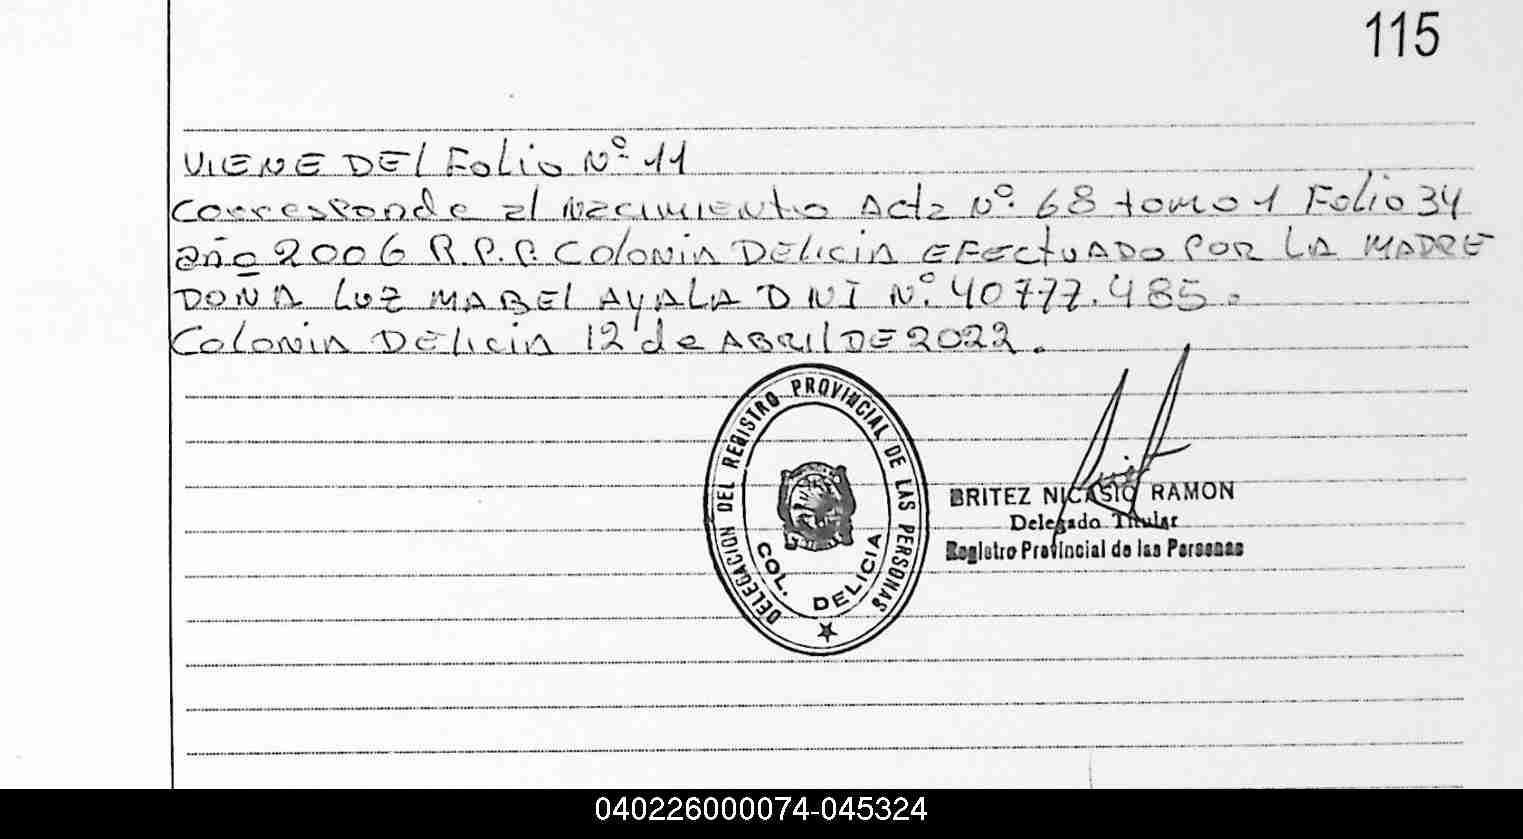 115
VIENE DEL Folio Nº 11
Corresponde al Nacimiento Acta Nº 68 tomo 1 Folio 34
año 2006 R.P.P. Colonia DELicia EFECTUADO POR LA MADRE
DOÑA LUZ MABEL AYALA DNI Nº 40777.485.
Colonia DELicia 12 de ABRIL DE 2022.
DELEGACION DEL REGISTRO PROVINCIAL DE LAS PERSONAS
COL. DELICIA
BRITEZ NICASIO RAMON
Delegado Titular
Registro Provincial de las Personas
040226000074-045324